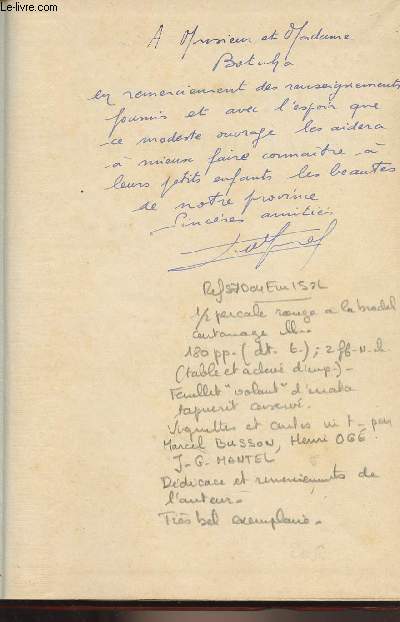 Le-livre.com
A Monsieur et Madame
Botuha
en remerciement des renseignements
fournis et avec l'espoir que
ce modeste ouvrage les aidera
à mieux faire connaître à
leurs petits enfants les beautés
de notre province
Sincères amitiés
1/2 percale rouge à la bradel
cartonnage
180 pp. (dt. 6.) ; 2 ff. n. ch
(table et achevé d'imp.) -
Feuillet "volant" d'errata
conservé.
Vignettes et cartes in t- par
Marcel BUSSON, Henri OGÉ
J-G- MANTEL
Dédicace et remerciements de
l'auteur -
Très bel exemplaire -